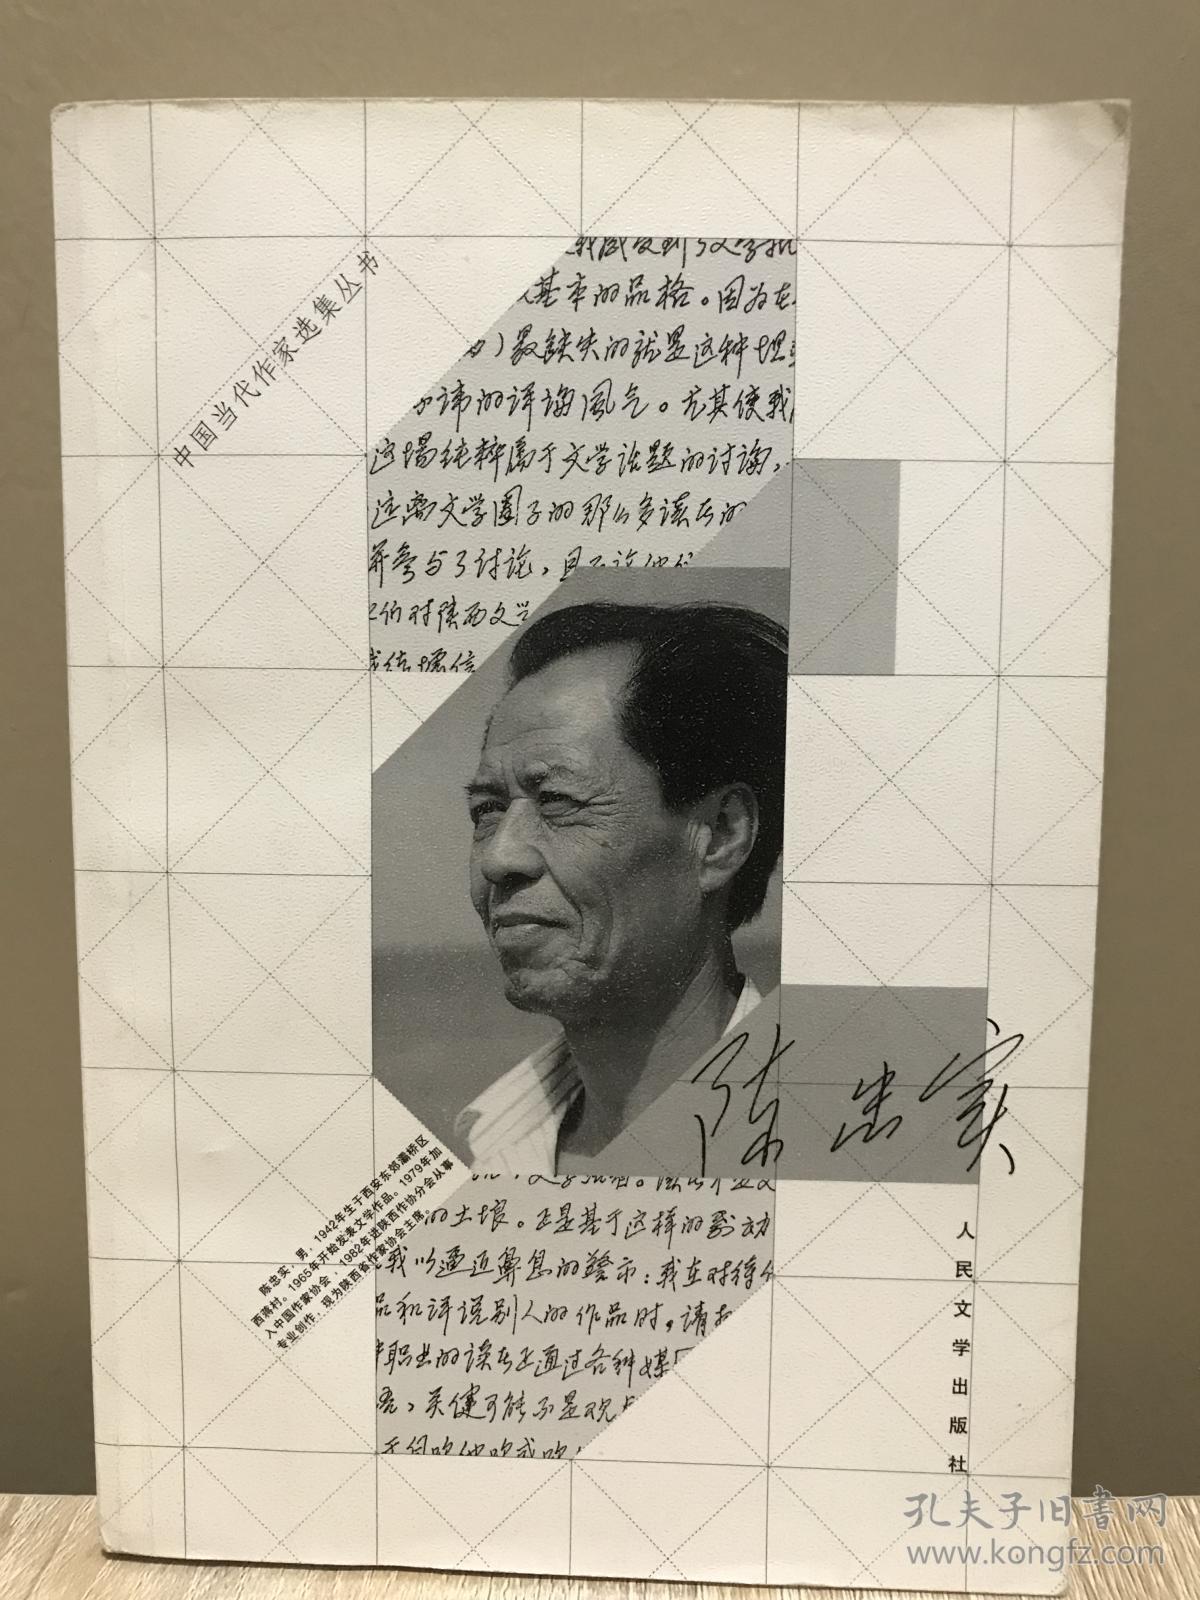 中国当代作家选集丛书
基本的品格。因为在
)最缺失的就是这种坦
讳的评论风气。尤其使我
这场纯粹属于文学话题的讨论,
这离文学圈子的那么多读者的
并参与了讨论,且不说他们
们对陕西文学
陈忠实
陈忠实,男,1942年生于西安东郊灞桥区
西蒋村。1965年开始发表文学作品。1979年加
入中国作家协会,1982年进陕西作协分会从事
专业创作,现为陕西省作家协会主席。
的土壤。正是基于这样的
我以逼近鼻息的警示:我在对待
品和评说别人的作品时,请
职业的读者正通过各种媒
关键可能不是观
人民文学出版社
孔夫子旧书网
www.kongfz.com